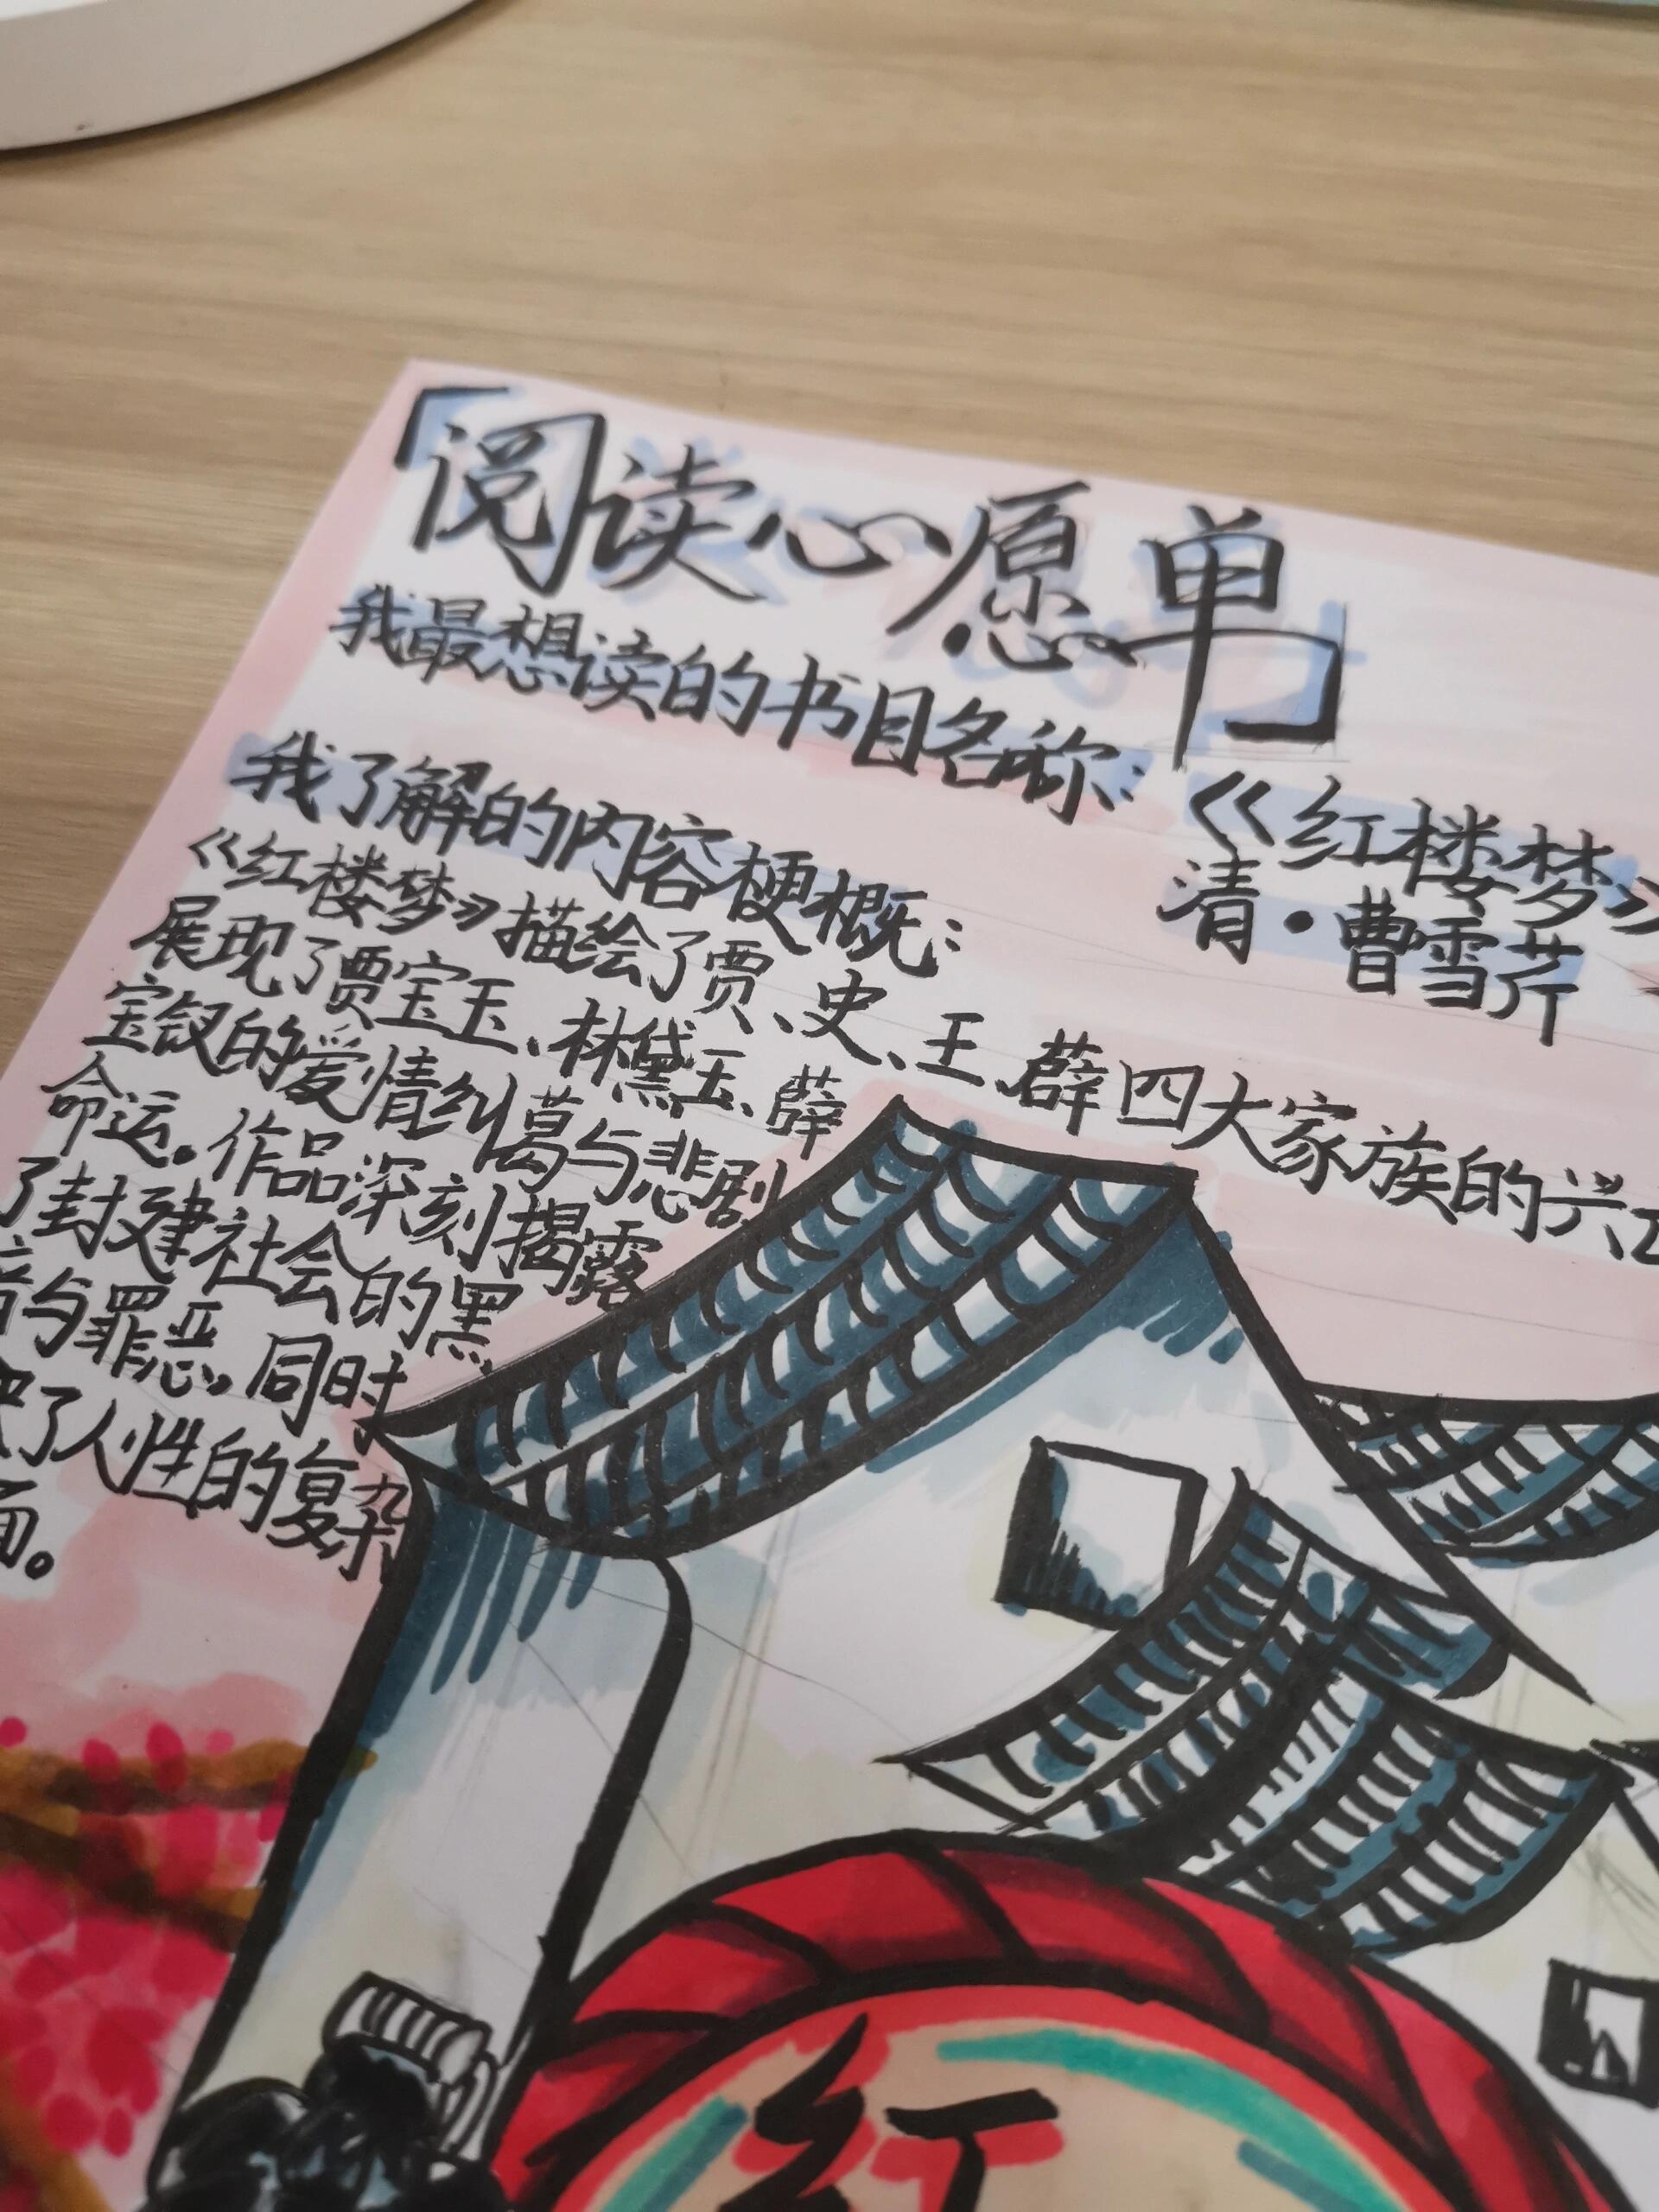 「阅读心愿单」
我最想读的书目名称:《红楼梦》
清·曹雪芹
我了解的内容梗概:
《红楼梦》描绘了贾、史、王、薜四大家族的兴
展现了贾宝玉、林黛玉、薛
宝钗的爱情纠葛与悲剧
命运。作品深刻揭露
了封建社会的黑
与罪恶。同时
了人性的复杂
面。
红